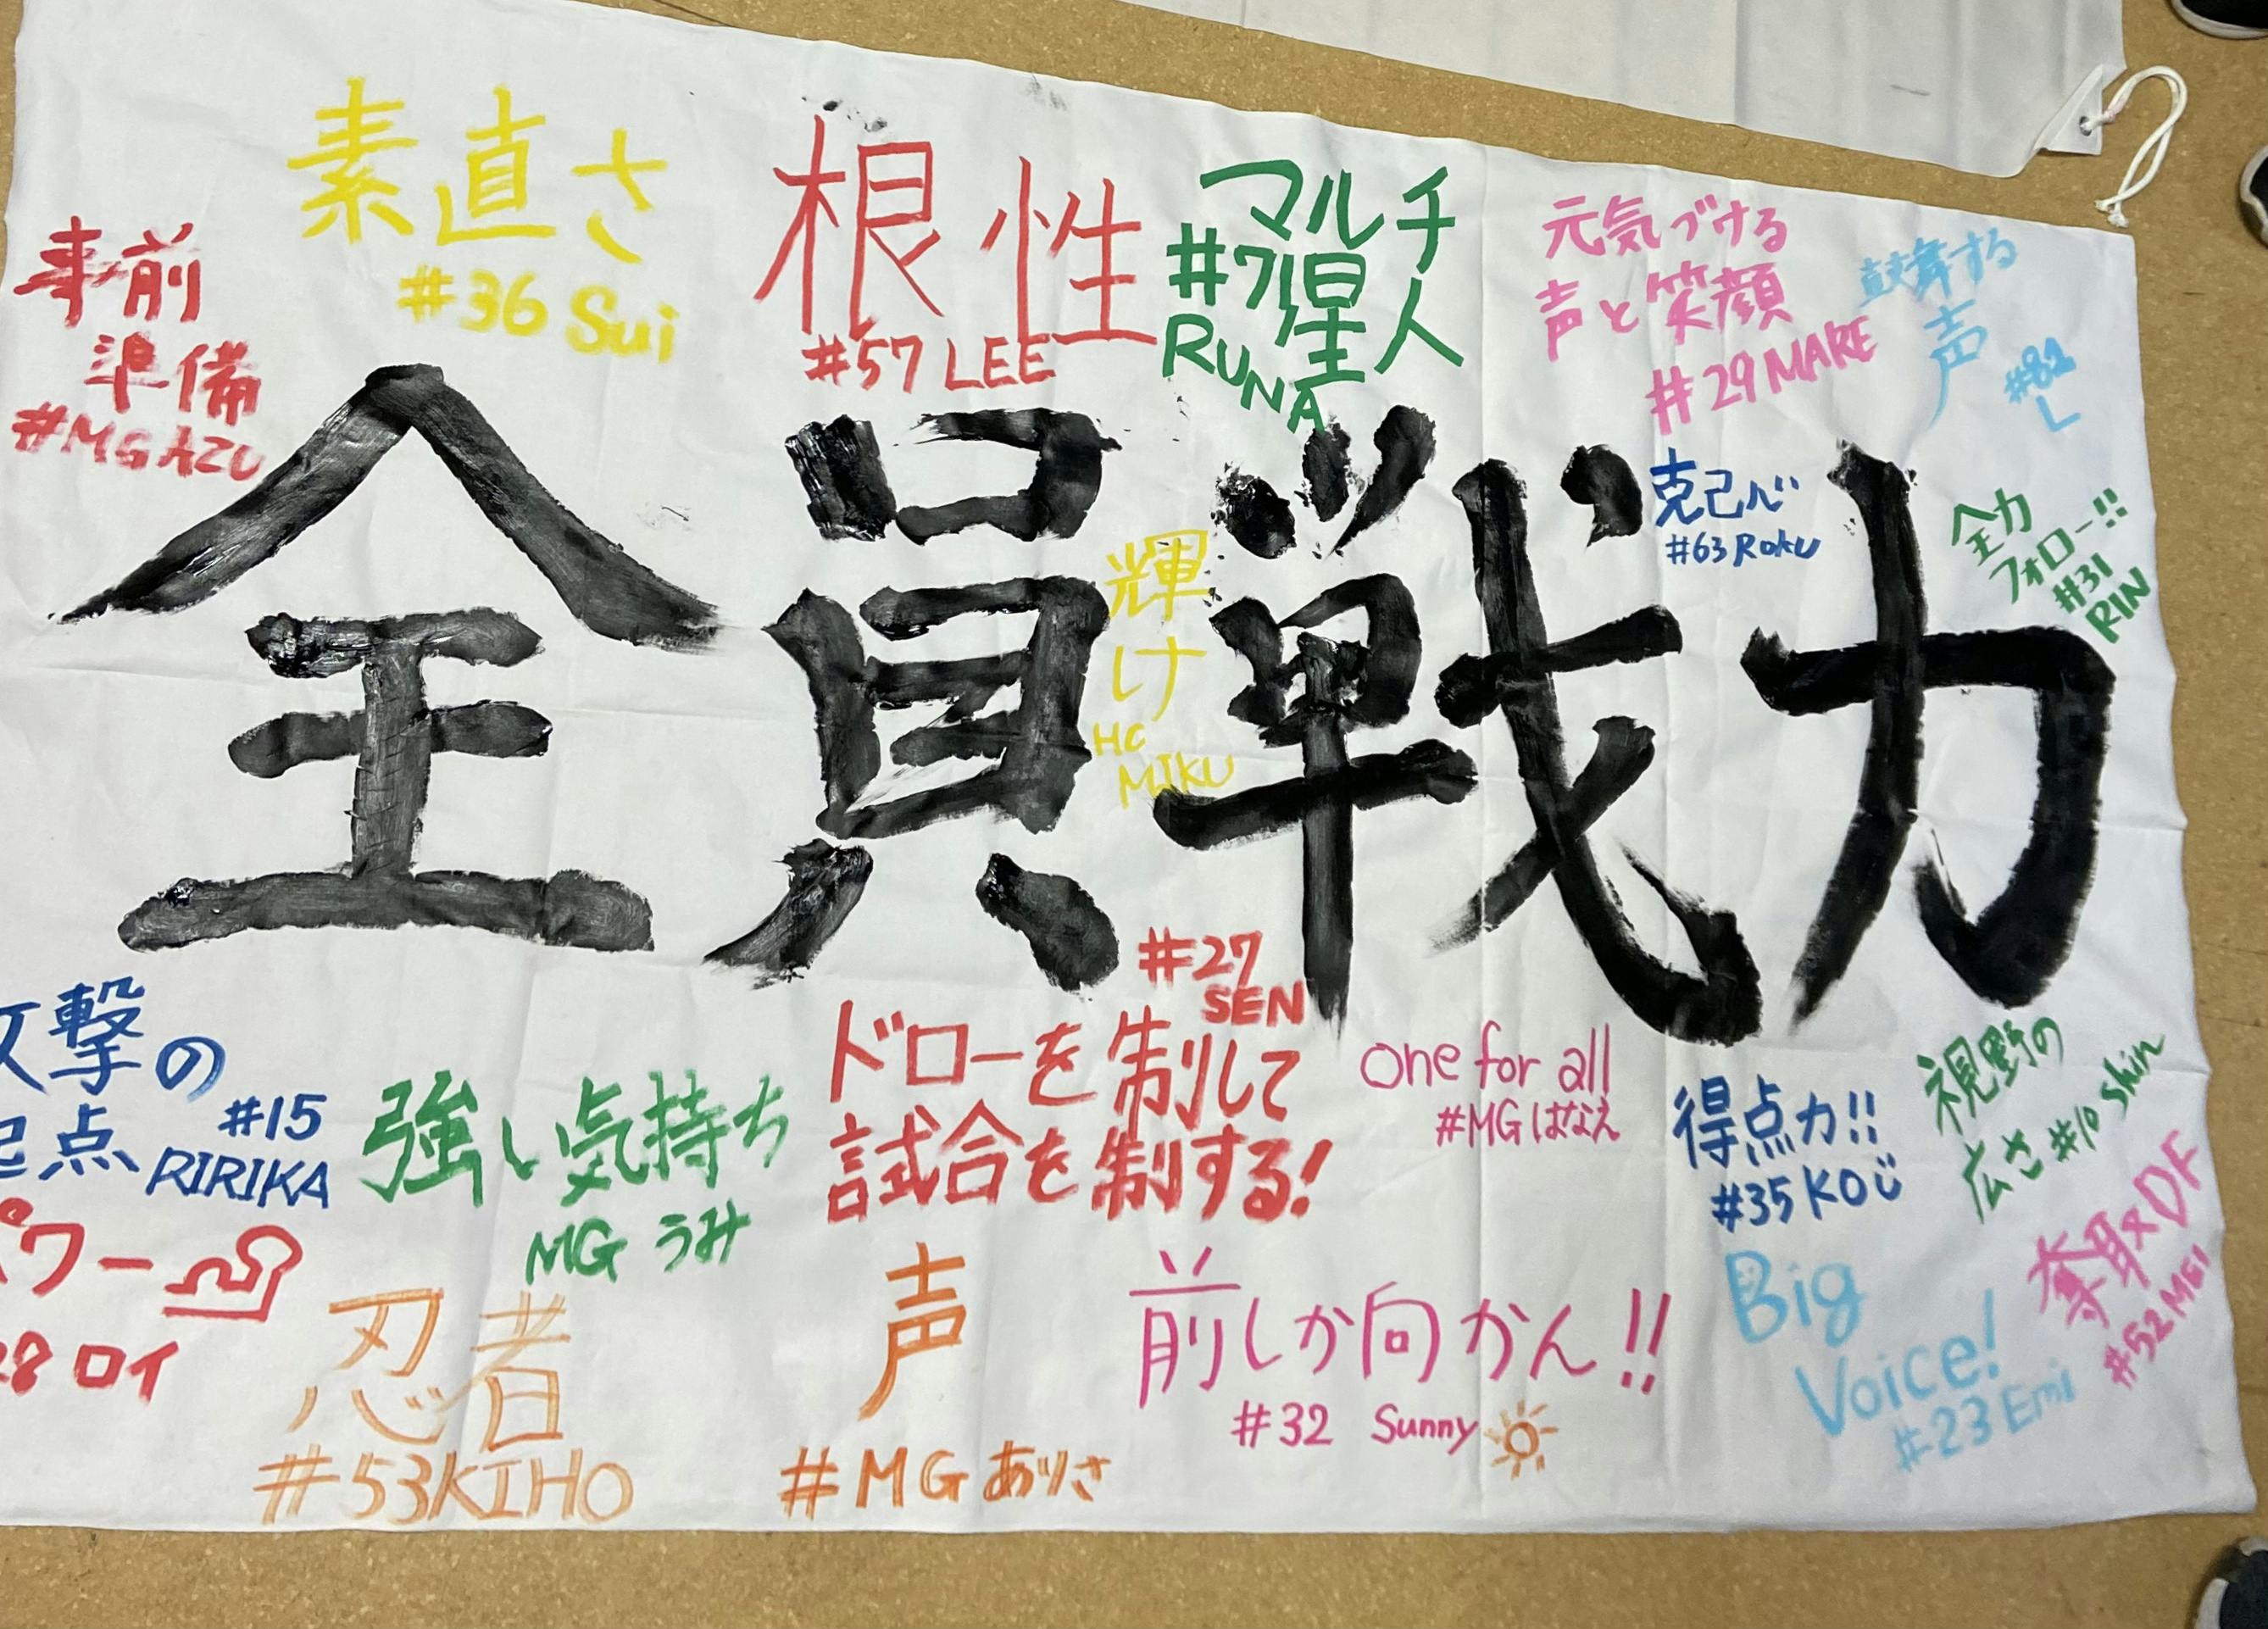 素直さ
#36 Sui
事前
準備
#MG AZU
根性
#57 LEE
マルチ
星人
#71
RUNA
元気づける
声と笑顔
#29 MARE
鼓舞する
声
#82
L
全員戦力
克己心
#63 Roku
全力
フォロー!!
#31
RIN
輝け
HC
MIKU
攻撃の
起点
#15
RIRIKA
強い気持ち
MG うみ
#27
SEN
ドローを制して
試合を制する!
one for all
#MG はなえ
得点力!!
#35 KOじ
視野の
広さ #10 Shin
奪取×DF
#52 MEI
パワー
28 ロイ
忍者
#53 KIHO
声
#MG ありさ
前しか向かん!!
#32 Sunny
Big
Voice!
#23 Emi